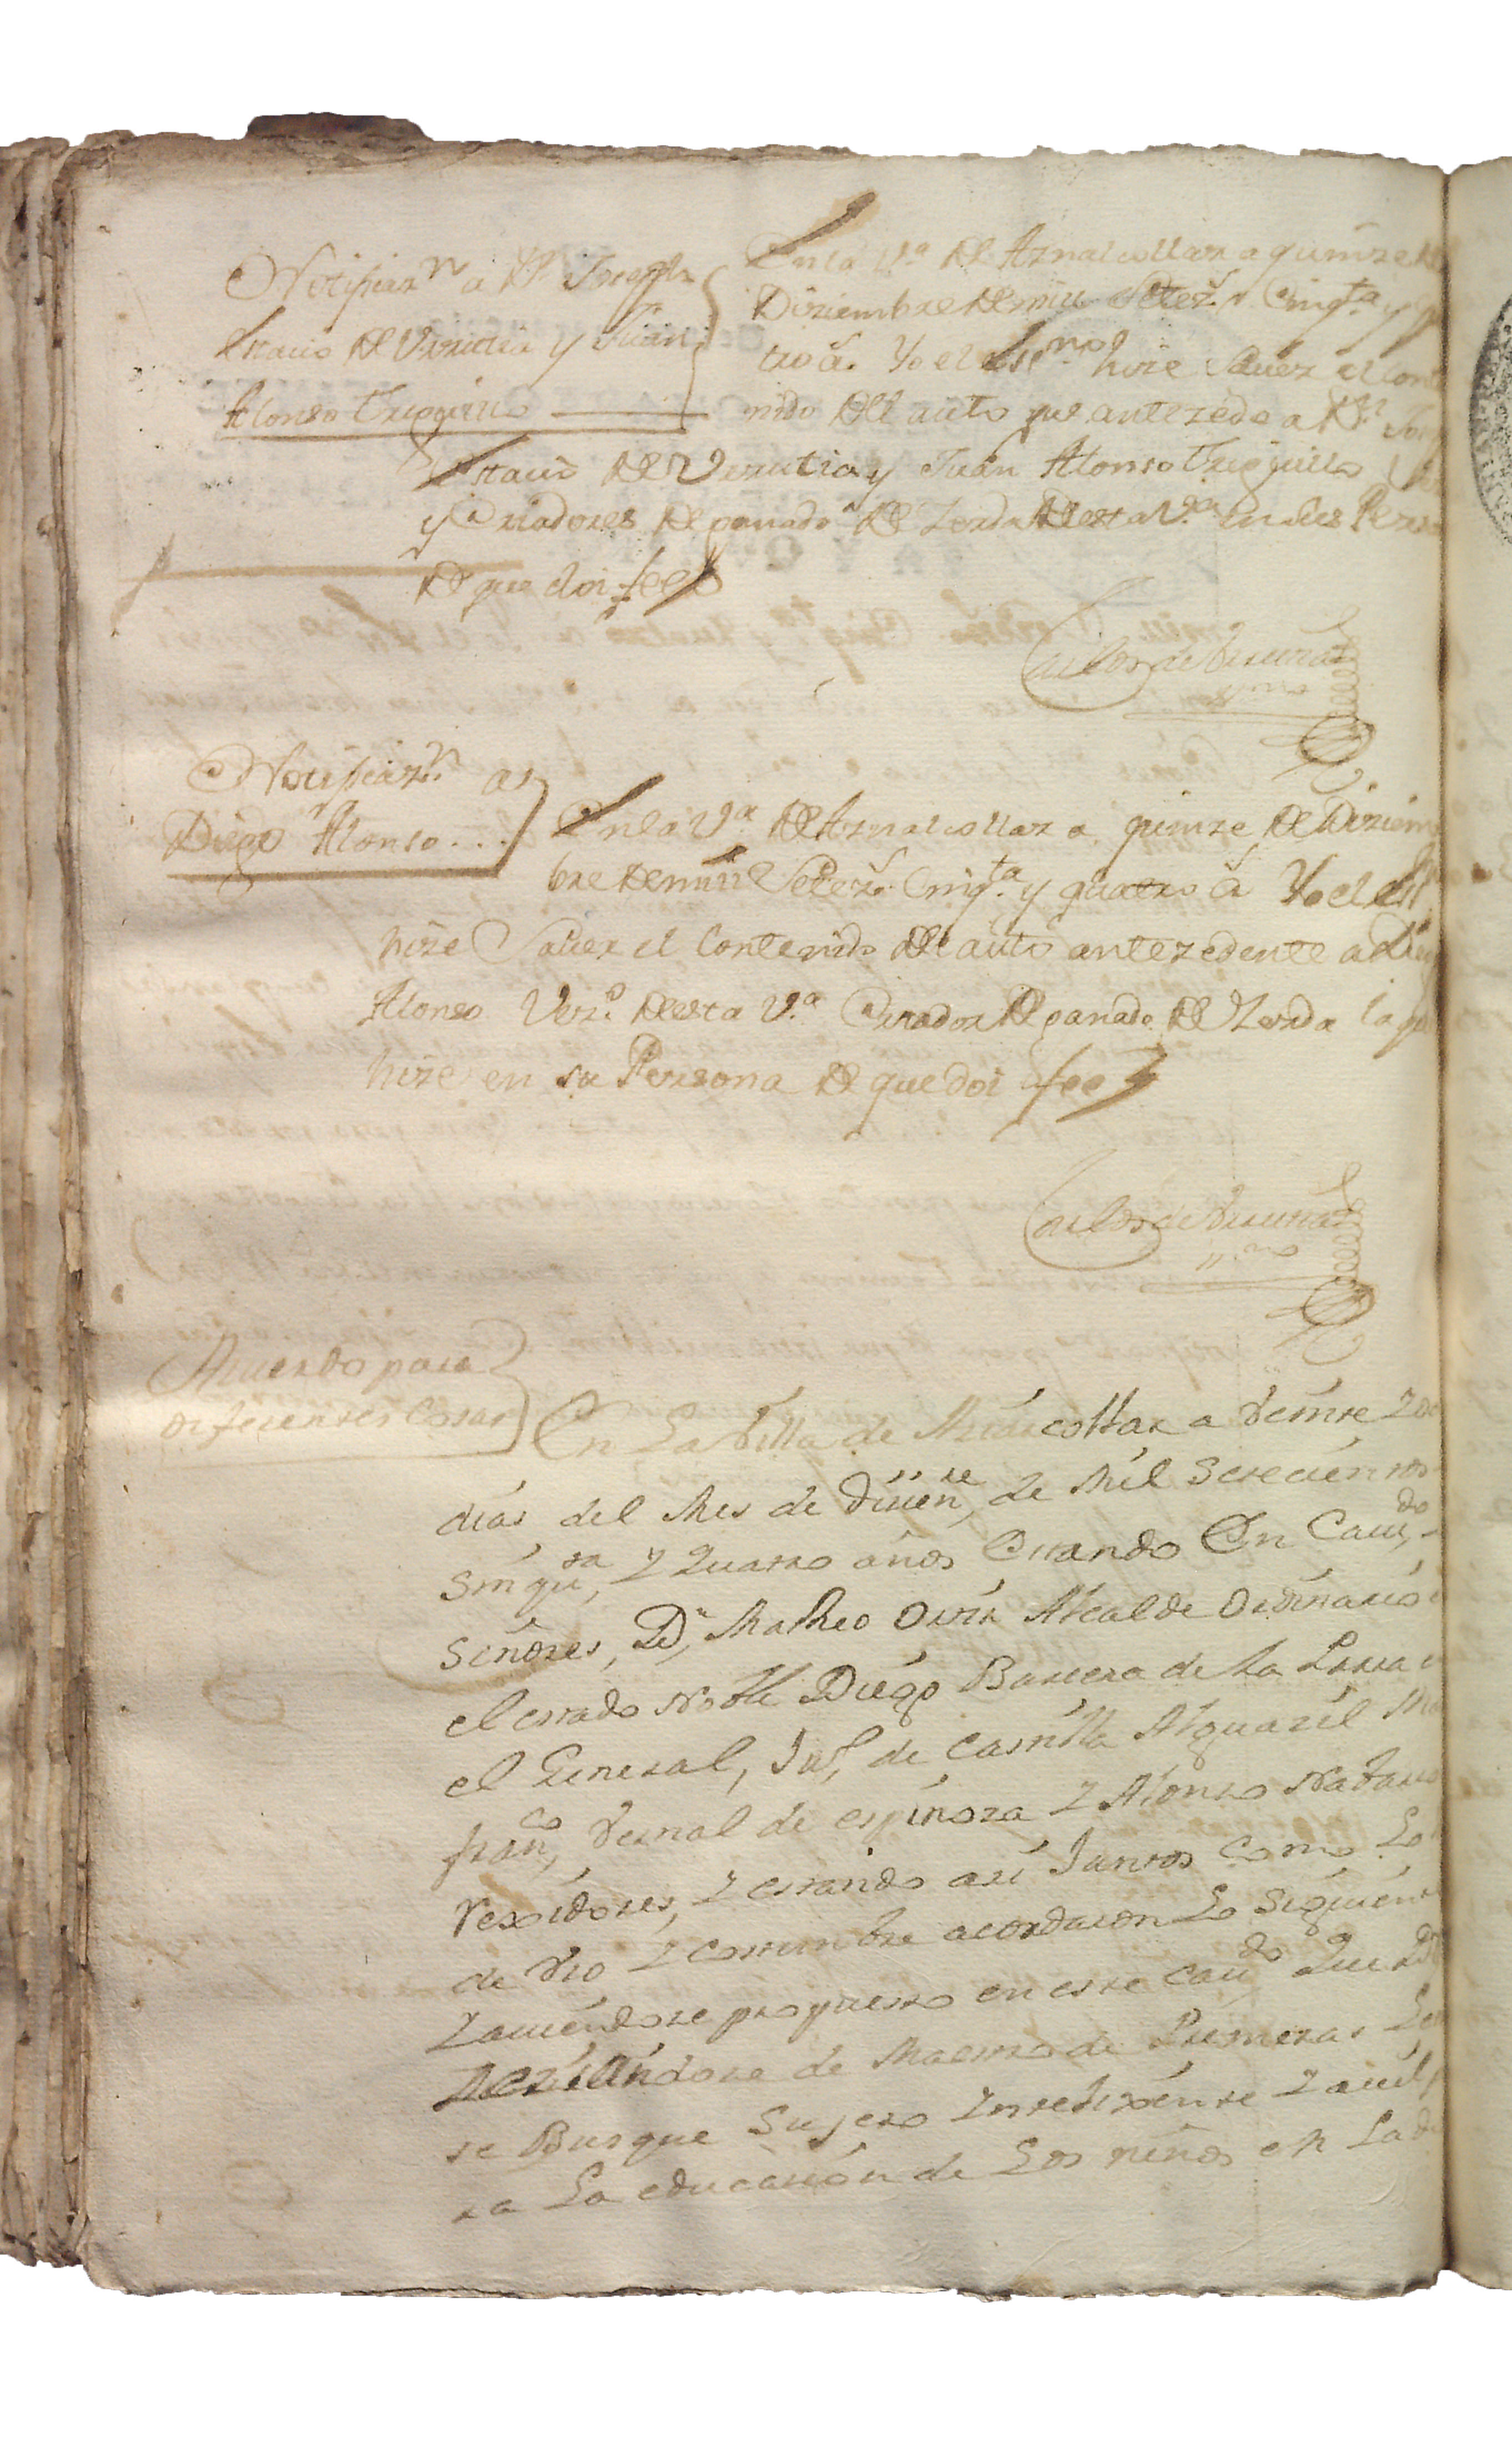 Notificaz.n a D.n Joseph
Estacio de Verutia y Juan
Alonso Triguillo
En la V.a de Aznalcollar a quinze de
Diziembre de mill Setez.s Cinq.ta y
tro a.s Yo el Ess.no hize Saver el Conte
nido del auto que antezede a D.n
Estacio de Verutia y Juan Alonso Triguillo
y Criadores de ganado de Zerda desta V.a en sus Perso
de que doi fee
Carlos de
Ess.no
Notificaz.n a
Diego Alonso...
En la V.a de Aznalcollar a quinze de Diziem
bre de mill Setez.s Cinq.ta y quatro a.s Yo el Ess
hize Saver el Contenido del auto antezedente a Dieg
Alonso Vez.o desta V.a Criador de ganado de Zerda la qu
hize en su Persona de que doi fee
Carlos de
Ess.no
Acuerdo para
diferentes Cosas
En La Villa de Aznacollar a Veinte y
dias del Mes de Dicien.re de Mil Setecientos
Sinqu.ta y Quatro años Estando En Cavi.do
Señores, D.n Matheo Ortiz Alcalde Ordinario
el estado Noble Diego Barrera de la
el General, Ju.o de Casrilla Alguazil Ma
fran.co Vernal de espinoza y Alonso Nabarro
rexidores, y estando asi Juntos Como Lo
de Vso y costumbre acordaron Lo Siguient
y aviendose propuesto en este cavi.do Que D.n
de Maestro de Primeras Le
se Busque Sujeto Yntelixente y avil
ra La educacion de Los niños en La